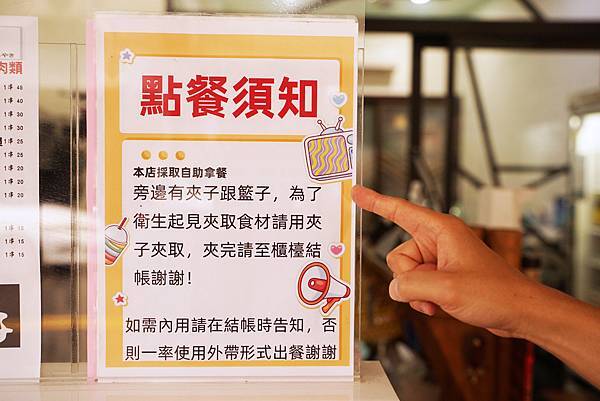 肉類
1串 45
1串 40
1串 30
1串 40
1串 30
1串 25
1串 25
1串 20
1串 20
1串 20
1串 15
1串 15
1串 15
點餐須知
本店採取自助拿餐
旁邊有夾子跟籃子，為了
衛生起見夾取食材請用夾
子夾取，夾完請至櫃檯結
帳謝謝！
如需內用請在結帳時告知，否
則一率使用外帶形式出餐謝謝